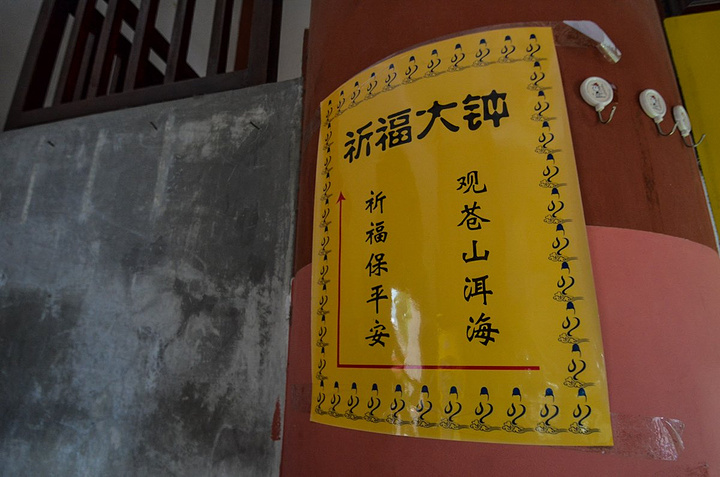 祈福大钟
观苍山洱海
祈福保平安